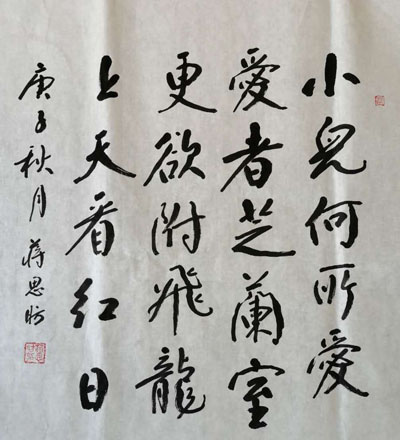 小兒何所愛
愛者芝蘭室
更欲附飛龍
上天看紅日
庚子秋月 蔣思